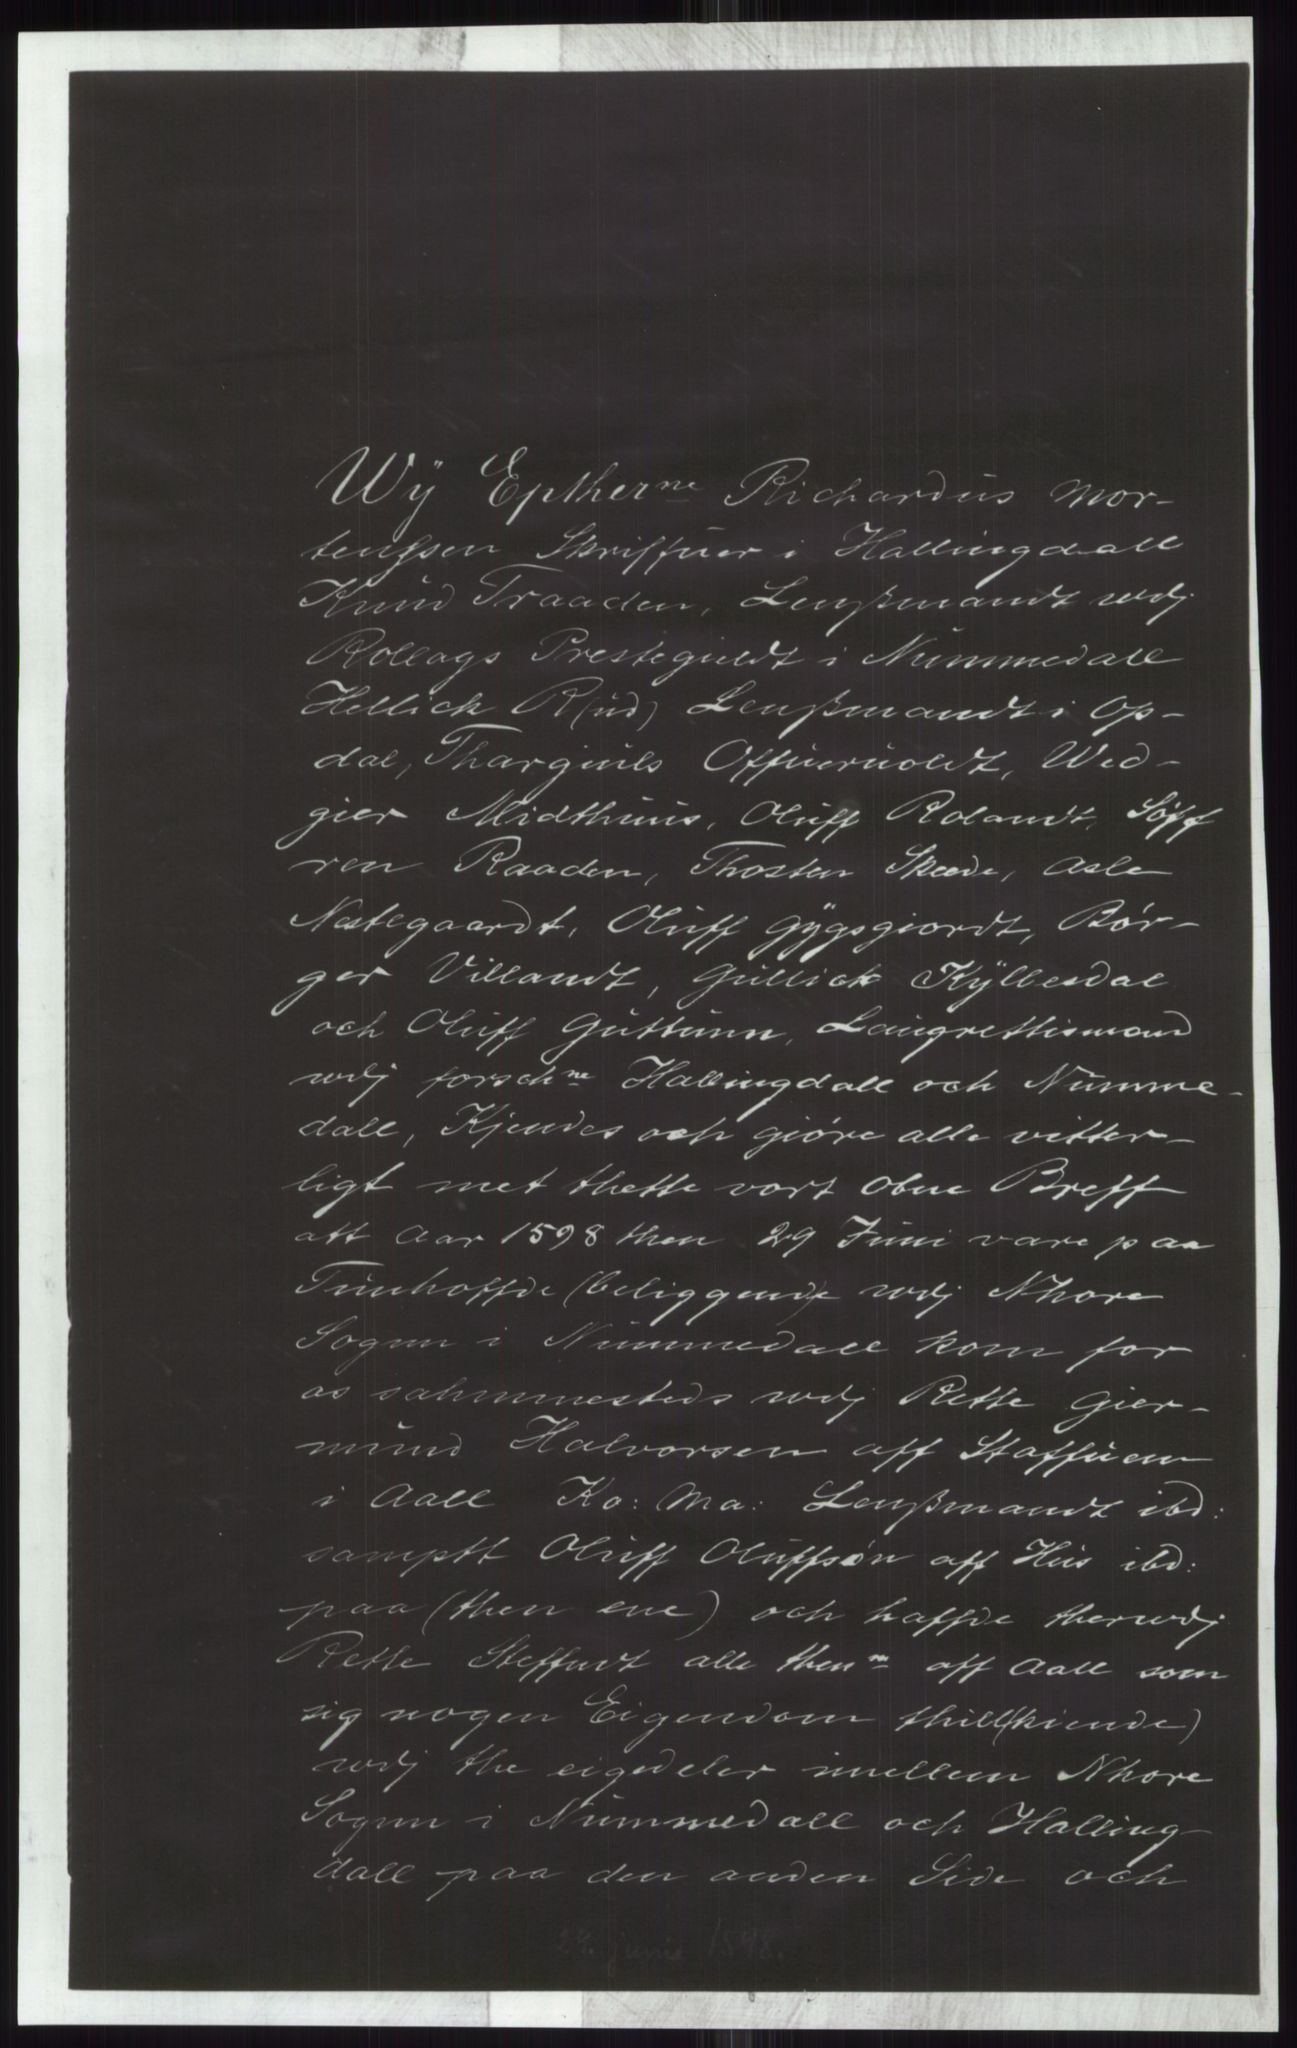 Wÿ Epther<sup>ne</sup> Richardüs Mor-
tenssen Skriffüer i Hallingdall
Knüd Traaden, Lenßmandt wdj
Rollags Presteguldt i Nümmedall
Hellick R(üd) Lenßmandt i Op-
dal, Thargiüls Offüerüoldt, Wed-
gier Midthüüs, Olüff Rolandt, Söff
ren Raaden, Thosten Skeede, Asle
Nestegaardt, Olüff Gÿgsgiordt, Bör-
ger Villandt, Güllick Kÿllesdal
och Olüff Güttünn, Laügrettismend
wdj forsch<sup>ne</sup> Hallingdall och Nümme-
dall, Kjendes och giöre alle vitter-
ligt met thette vort Obne Breff
att Aar 1598 then 29 Jüni vare paa
Tünhoffde (beliggende) wdj Nhore
Sognn i Nümmedall kom for
os sahmmesteds wdj Rette Gier-
münd Halvorsen aff Staffüen
i Aall Ko: Ma: Lenßmandt ibd:
samptt Olüff Olüffsön aff Hüs ibd:
paa (then ene) och haffde therwdj
Rette Steffndt alle then<sup>m</sup> aff Aall som
sig nogen Eigendom thill(kiende)
wdj the eigedeler imellem Nhore
Sognn i Nümmedall och Halling-
dall paa den anden Side och
29. junie 1598.